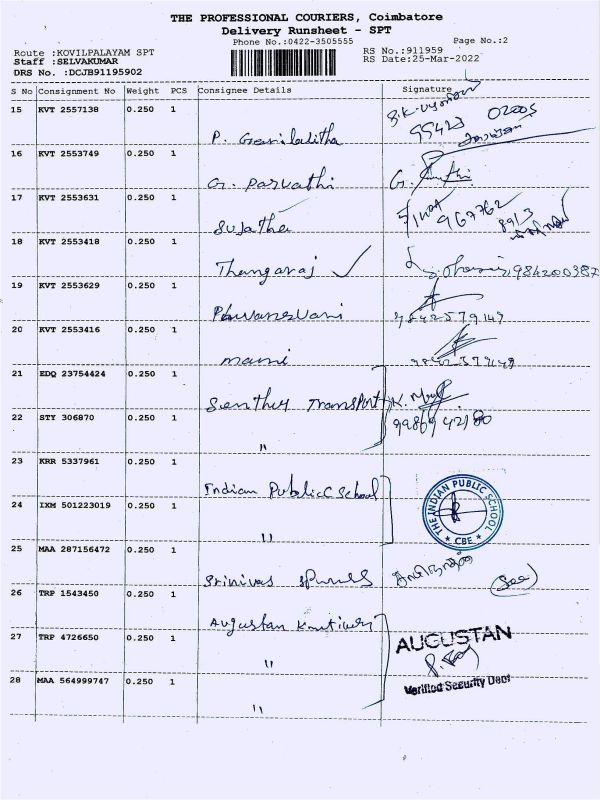 THE PROFESSIONAL COURIERS, Coimbatore
Delivery Runsheet - SPT
Phone No.:0422-3505555
Page No.:2
Route :KOVILPALAYAM SPT
RS No.:911959
Staff :SELVAKUMAR
RS Date:25-Mar-2022
DRS No. :DCJB91195902
S No Consignment No Weight PCS Consignee Details Signature
15 KVT 2557138 0.250 1
P.
16 KVT 2553749 0.250 1
G. Parvathi G.
17 KVT 2553631 0.250 1
Sujatha 967762
8913
18 KVT 2553418 0.250 1
Thangaraj
19 KVT 2553629 0.250 1
9842579149
20 KVT 2553416 0.250 1
mani
21 EDQ 23754424 0.250 1
Transport K.
22 STY 306870 0.250 1
"
23 KRR 5337961 0.250 1
Indian Public School
24 IXM 501223019 0.250 1
THE INDIAN PUBLIC SCHOOL
* CBE *
"
25 MAA 287156472 0.250 1
Srinivas
26 TRP 1543450 0.250 1
Augustan
27 TRP 4726650 0.250 1
AUGUSTAN
"
28 MAA 564999747 0.250 1
Verified Security Dept
"